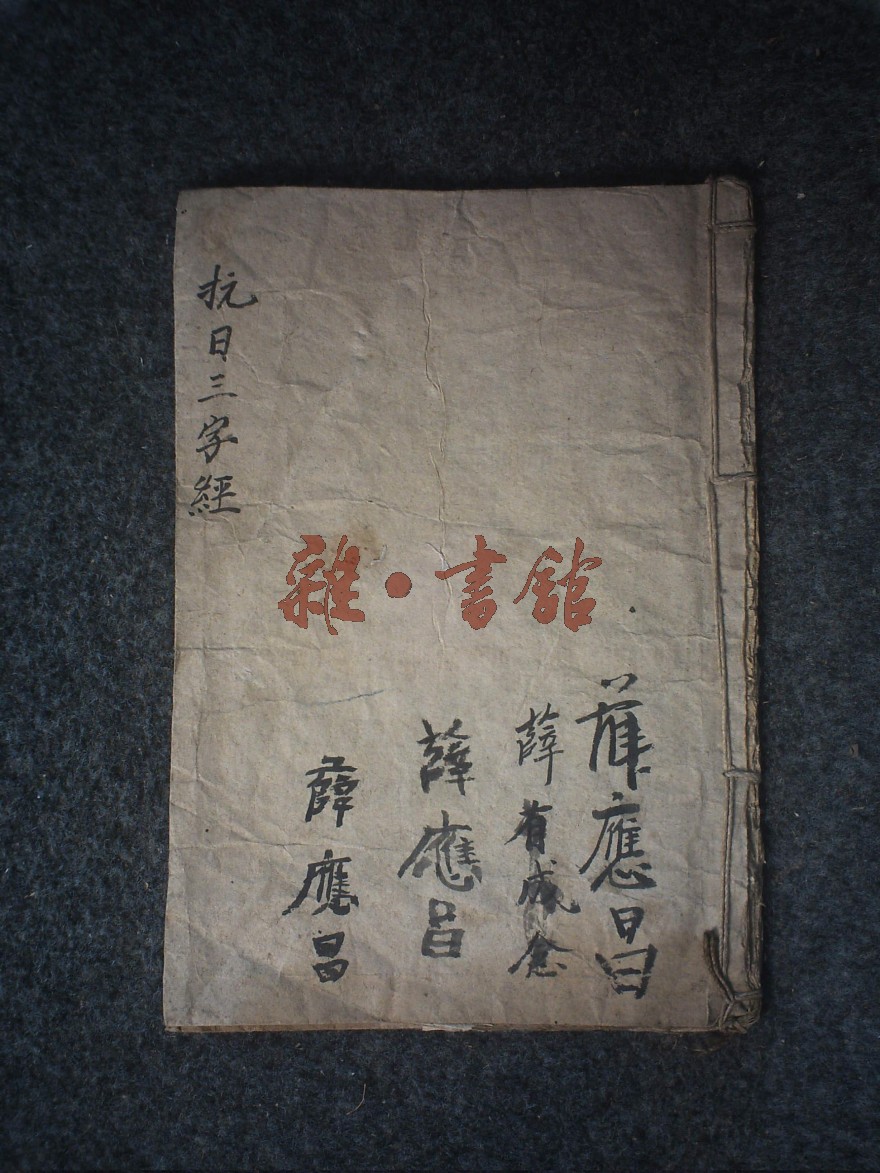 抗日三字經
雜·書館
薛應昌
薛有成念
薛應昌
薛應昌